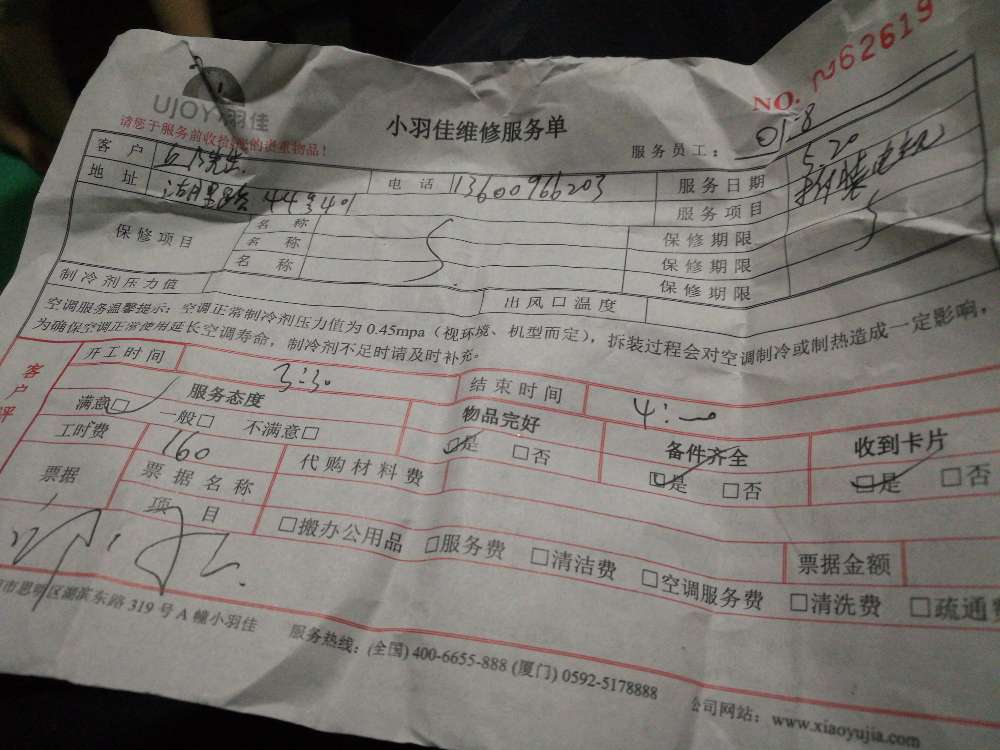 UJOY羽佳
NO. 262619
请您于服务前收拾您的贵重物品!
小羽佳维修服务单
服务员工: 01-8
客户 电话 13600966203 服务日期 5.20
地址 44号401 服务项目 拆装电机
保修项目 名称 保修期限
名称 保修期限
名称 保修期限
制冷剂压力值 出风口温度
空调服务温馨提示:空调正常制冷剂压力值为0.45mpa(视环境、机型而定),拆装过程会对空调制冷或制热造成一定影响,
为确保空调正常使用延长空调寿命,制冷剂不足时请及时补充。
客户评
开工时间 3:30 结束时间 4:00
服务态度 物品完好 备件齐全 收到卡片
满意□ 一般□ 不满意□ □是 □否 □是 □否 □是 □否
工时费 160 代购材料费
票据 票据名称 票据金额
项目 □搬办公用品 □服务费 □清洁费 □空调服务费 □清洗费 □疏通费
市思明区湖滨东路319号A幢小羽佳 服务热线:(全国)400-6655-888(厦门)0592-5178888 公司网站:www.xiaoyujia.com